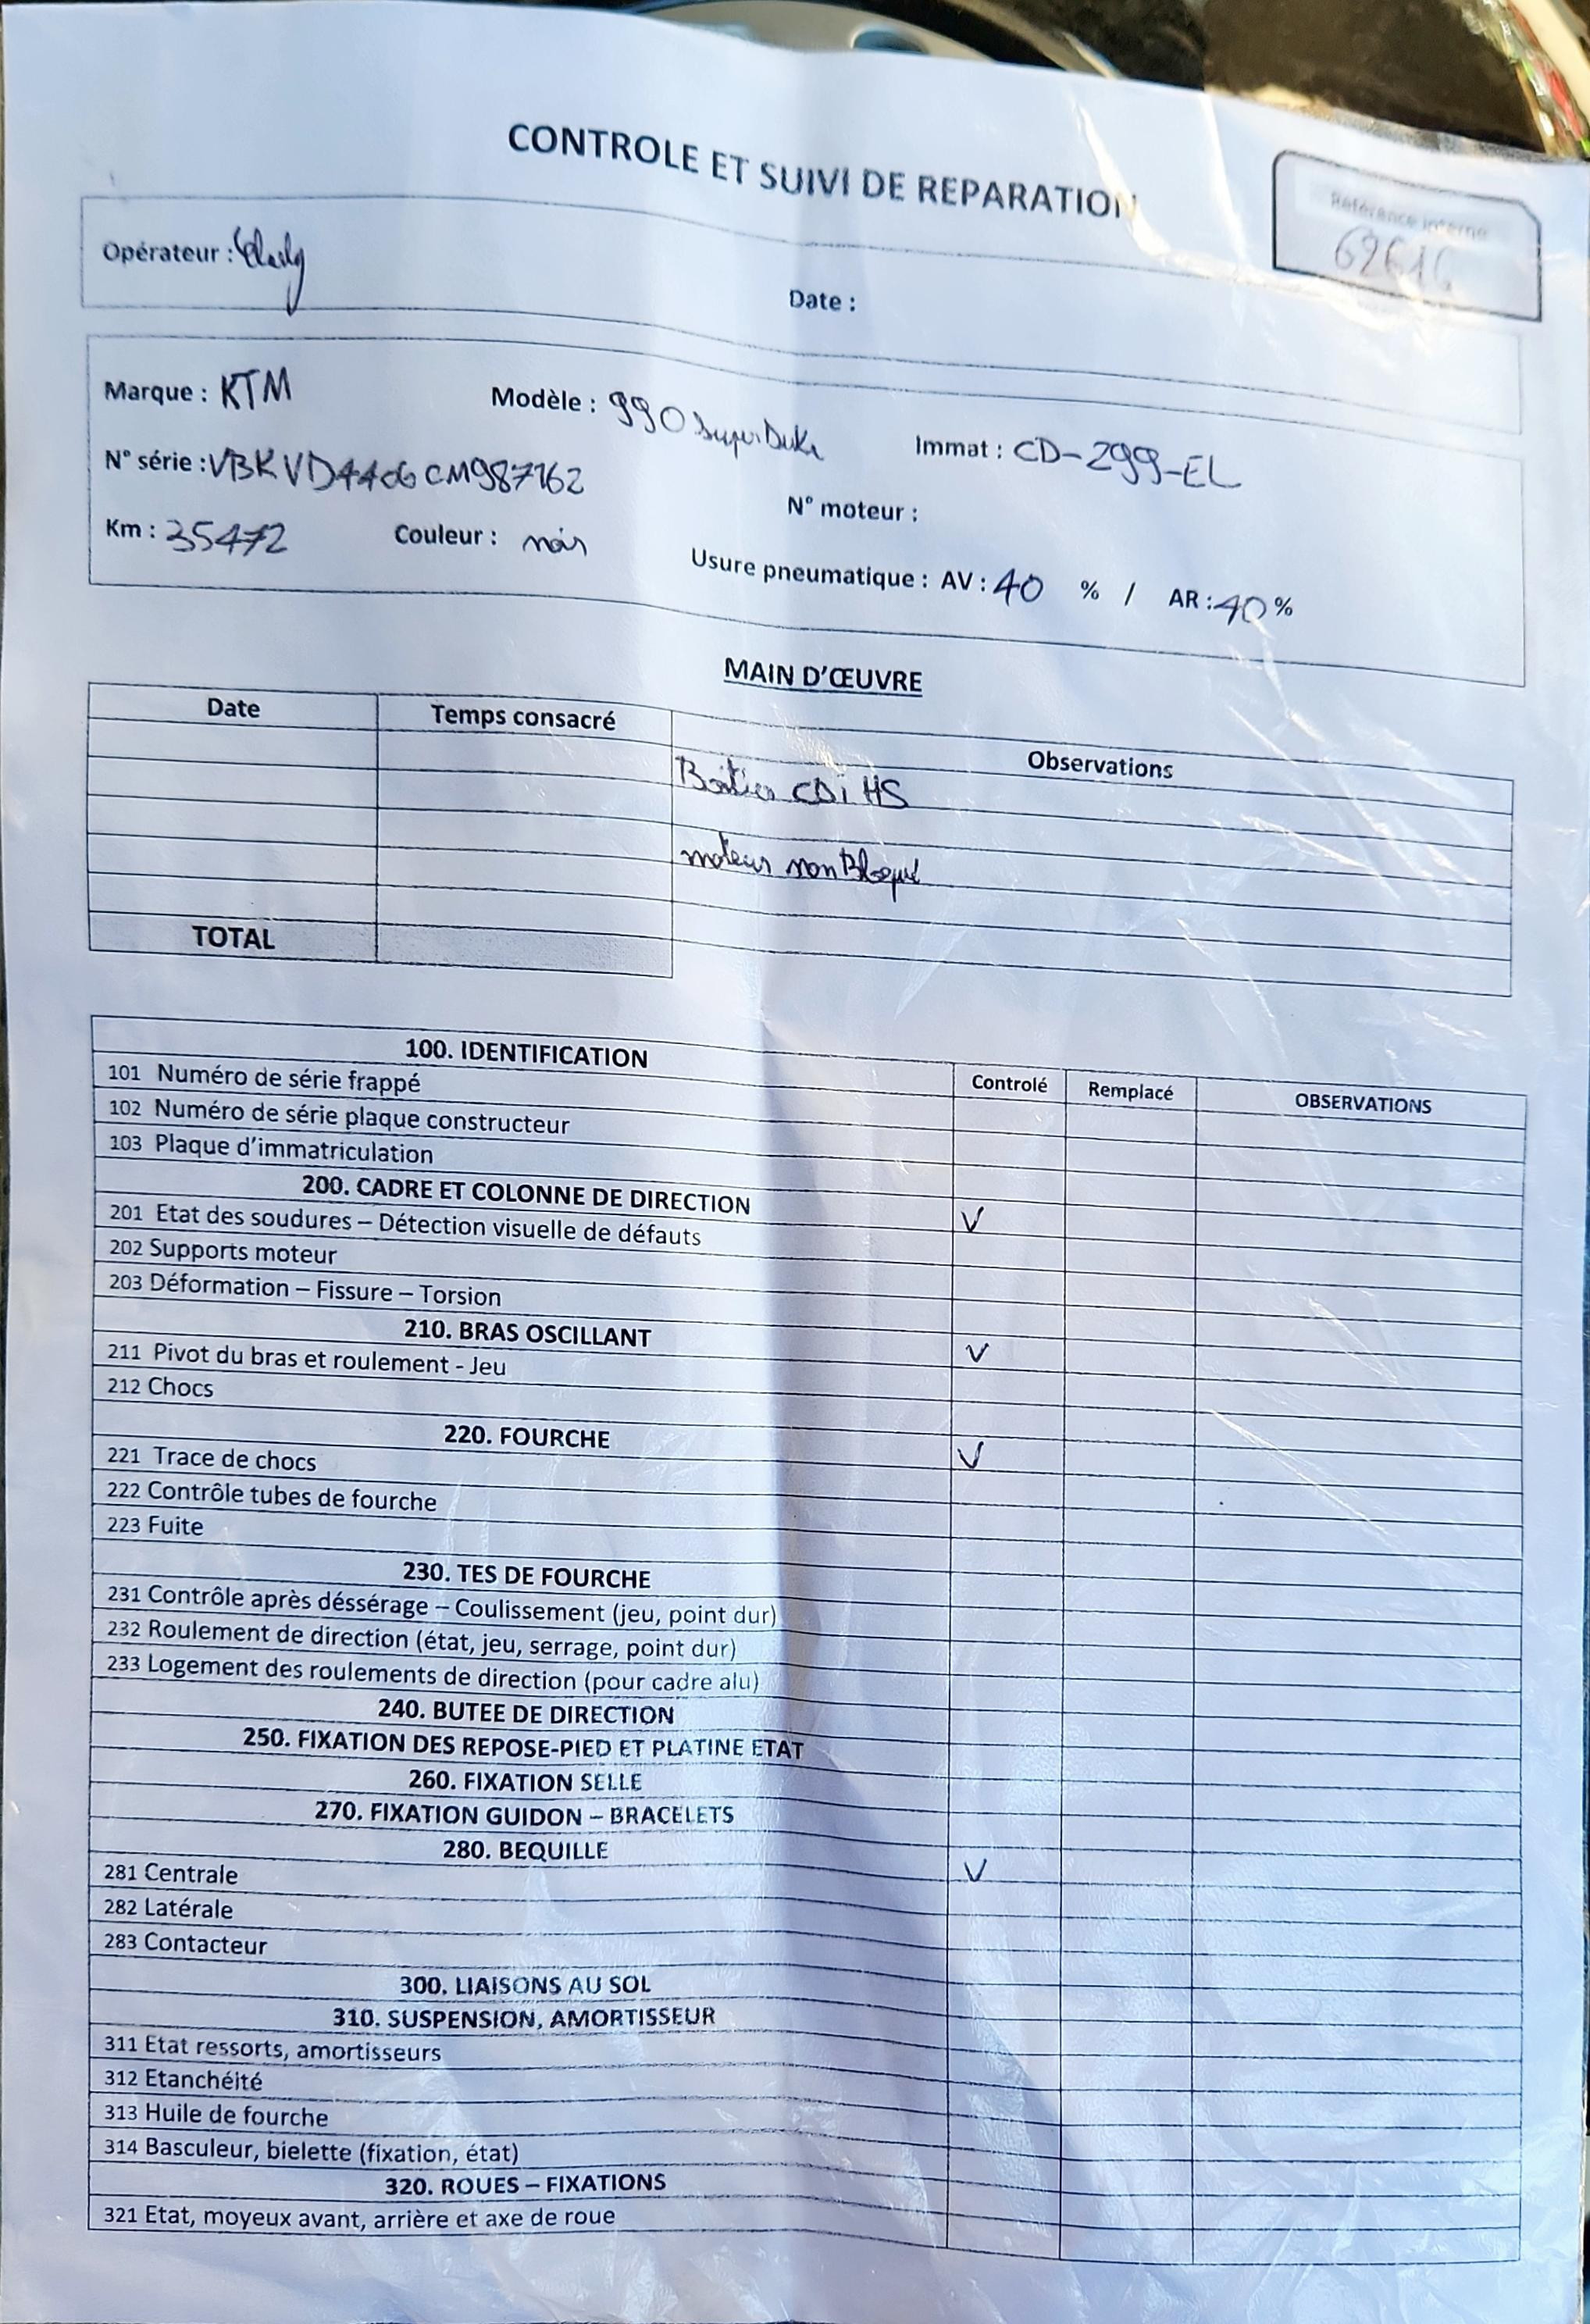 CONTROLE ET SUIVI DE REPARATION
Référence interne
69616
Opérateur :
Date :
Marque : KTM Modèle : 990 SuperDuke Immat : CD-299-EL
N° série : VBKVD4406CM987162 N° moteur :
Km : 35472 Couleur : noir Usure pneumatique : AV : 40 % / AR : 40 %
MAIN D'ŒUVRE
Date Temps consacré Observations
Boitier CDi HS
moteur non Bloqué
TOTAL
100. IDENTIFICATION Controlé Remplacé OBSERVATIONS
101 Numéro de série frappé
102 Numéro de série plaque constructeur
103 Plaque d'immatriculation
200. CADRE ET COLONNE DE DIRECTION
201 Etat des soudures – Détection visuelle de défauts V
202 Supports moteur
203 Déformation – Fissure – Torsion
210. BRAS OSCILLANT
211 Pivot du bras et roulement - Jeu V
212 Chocs
220. FOURCHE
221 Trace de chocs V
222 Contrôle tubes de fourche
223 Fuite
230. TES DE FOURCHE
231 Contrôle après déssérage – Coulissement (jeu, point dur)
232 Roulement de direction (état, jeu, serrage, point dur)
233 Logement des roulements de direction (pour cadre alu)
240. BUTEE DE DIRECTION
250. FIXATION DES REPOSE-PIED ET PLATINE ETAT
260. FIXATION SELLE
270. FIXATION GUIDON – BRACELETS
280. BEQUILLE
281 Centrale V
282 Latérale
283 Contacteur
300. LIAISONS AU SOL
310. SUSPENSION, AMORTISSEUR
311 Etat ressorts, amortisseurs
312 Etanchéité
313 Huile de fourche
314 Basculeur, bielette (fixation, état)
320. ROUES – FIXATIONS
321 Etat, moyeux avant, arrière et axe de roue